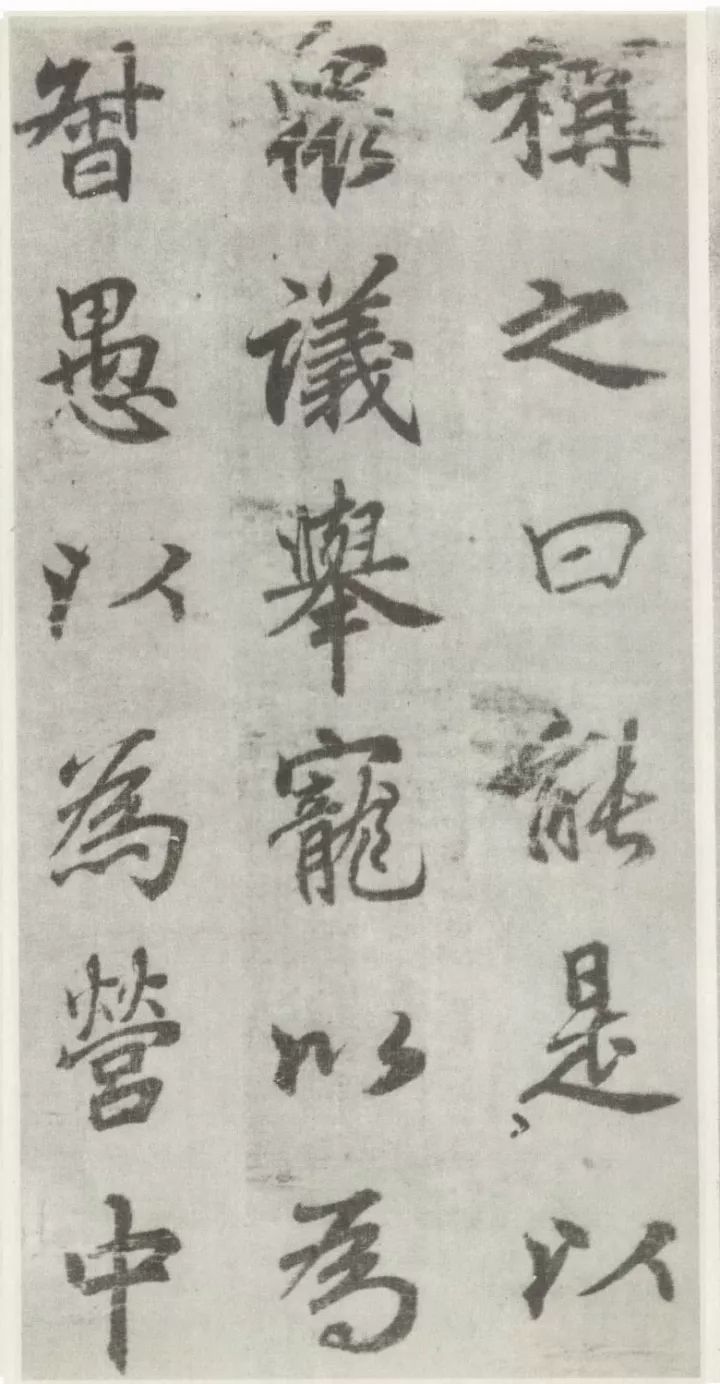 稱之曰能是以
衆議舉寵以為
督愚以為營中